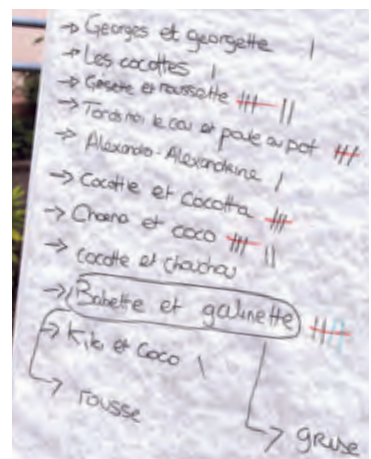 → Georges et georgette |
→ Les cocottes |
→ Cosette et roussette |||| ||
→ Tords moi le cou et poule au pot ||||
→ Alexandra-Alexandrine |
→ Cocotte et Cocotta ||||
→ et coco |||| ||
→ cocotte et chouchou
→ Babette et galinette ||||
→ Kiki et Coco \
→ rousse
→ grise